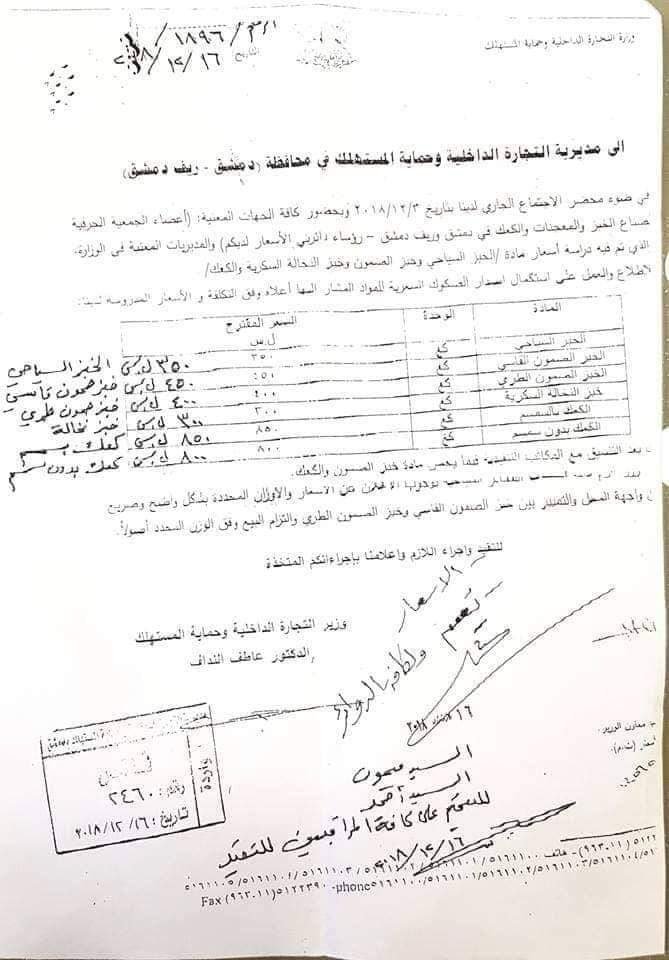 وزارة التجارة الداخلية وحماية المستهلك
الرقم / ١٨٩٦
التاريخ ١٦/ ١٢/ ٢٠١٨
الى مديرية التجارة الداخلية وحماية المستهلك في محافظة (دمشق - ريف دمشق)
في ضوء محضر الاجتماع الجاري لدينا بتاريخ ٢٠١٨/١٢/٣ وبحضور كافة الجهات المعنية: (أعضاء الجمعية الحرفية
لصناع الخبز والمعجنات والكعك في دمشق وريف دمشق – رؤساء دائرتي الأسعار لديكم) والمديريات المعنية في الوزارة،
الذي تم فيه دراسة أسعار مادة /الخبز السياحي وخبز الصمون وخبز النخالة السكرية والكعك/
للاطلاع والعمل على استكمال اصدار الصكوك السعرية للمواد المشار اليها أعلاه وفق التكلفة و الأسعار المدروسة
المادة الوحدة السعر المقترح ل.س
الخبز السياحي كغ ٣٥٠ ٣٥٠ ل.س الخبز السياحي
الخبز الصمون القاسي كغ ٤٥٠ ٤٥٠ ل.س خبز صمون قاسي
الخبز الصمون الطري كغ ٤٠٠ ٤٠٠ ل.س خبز صمون طري
خبز النخالة السكرية كغ ٣٠٠ ٣٠٠ ل.س خبز نخالة
الكعك بالسمسم كغ ٨٥٠ ٨٥٠ ل.س كعك بسمسم
الكعك بدون سمسم كغ ٨٠٠ ٨٠٠ ل.س كعك بدون سمسم
بعد التنسيق مع المكاتب التنفيذية فيما يخص مادة خبز الصمون والكعك.
الاعلان عن الاسعار والأوزان المحددة بشكل واضح وصريح
واجهة المحل والتمييز بين خبز الصمون القاسي وخبز الصمون الطري والتزام البيع وفق الوزن المحدد أصولاً.
للتنفيذ واجراء اللازم واعلامنا بإجراءاتكم المتخذة
وزير التجارة الداخلية وحماية المستهلك
الدكتور عاطف النداف
الاسعار
تعمم ولكافة الدوائر
١٦ ٢٠١٨
واردة
رقم: ٢٤٦٠
تاريخ: ١٦/ ١٢/ ٢٠١٨
معاون الوزير
السيد ميمون
السيد أحمد
للتعميم على كافة المراقبين للتقيد
١٦/ ١٢/ ٢٠١٨
هاتف ٥١٦١١٠٠/ ٥١٦١١٠١/ ٥١٦١١٠٢/ ٥١٦١١٠٣/
Fax (٩٦٣٠١١) ٥١٢٢٣٩٠ -phone٥١٦١١٠٠/٥١٦١١٠١/٥١٦١١٠٢/٥١٦١١٠٣/٥١٦١١٠٤/